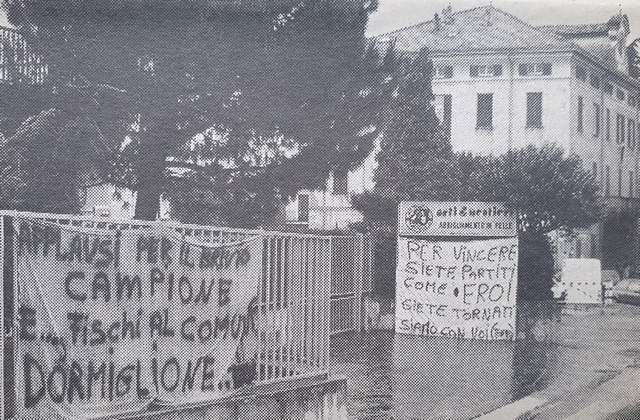 APPLAUSI PER IL BRAVO
CAMPIONE
E.... FISCHI AL COMUNE
DORMIGLIONE..
arti & mestieri
ABBIGLIAMENTO IN PELLE
PER VINCERE
SIETE PARTITI
COME EROI
SIETE TORNATI
SIAMO CON VOI